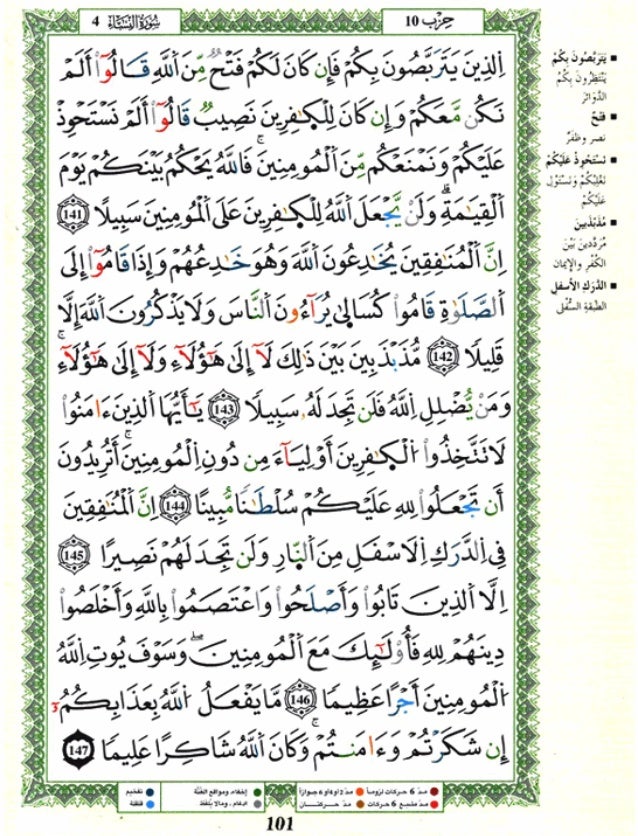 حِزْب 10
سُورَةُ النِّسَاءِ 4
اِ۬لذِينَ يَتَرَبَّصُونَ بِكُمْ فَإِن كَانَ لَكُمْ فَتْحٌ مِّنَ اَ۬للَّهِ قَالُوٓاْ أَلَمْ
نَكُن مَّعَكُمْ وَإِن كَانَ لِلْكٰ۪فِرِينَ نَصِيبٌ قَالُوٓاْ أَلَمْ نَسْتَحْوِذْ
عَلَيْكُمْ وَنَمْنَعْكُم مِّنَ اَ۬لْمُومِنِينَۖ فَاللَّهُ يَحْكُمُ بَيْنَكُمْ يَوْمَ
اَ۬لْقِيَٰمَةِۖ وَلَنْ يَّجْعَلَ اَ۬للَّهُ لِلْكٰ۪فِرِينَ عَلَى اَ۬لْمُومِنِينَ سَبِيلًا 141
اِنَّ اَ۬لْمُنَٰفِقِينَ يُخَٰدِعُونَ اَ۬للَّهَ وَهُوَ خَٰدِعُهُمْ وَإِذَا قَامُوٓاْ إِلَى
اَ۬لصَّلَوٰةِ قَامُواْ كُسَالىٰ يُرَآءُونَ اَ۬لنَّاسَ وَلَا يَذْكُرُونَ اَ۬للَّهَ إِلَّا
قَلِيلًا 142 مُّذَبْذَبِينَ بَيْنَ ذَٰلِكَ لَآ إِلَىٰ هَٰٓؤُلَآءِ وَلَآ إِلَىٰ هَٰٓؤُلَآءِۖ
وَمَنْ يُّضْلِلِ اِ۬للَّهُ فَلَن تَجِدَ لَهُۥ سَبِيلًا 143 يَٰٓأَيُّهَا اَ۬لذِينَ ءَامَنُواْ
لَا تَتَّخِذُواْ اُ۬لْكٰ۪فِرِينَ أَوْلِيَآءَ مِن دُونِ اِ۬لْمُومِنِينَۖ أَتُرِيدُونَ
أَن تَجْعَلُواْ لِلهِ عَلَيْكُمْ سُلْطَٰنًا مُّبِينًا 144 اِنَّ اَ۬لْمُنَٰفِقِينَ
فِے اِ۬لدَّرَكِ اِ۬لَاسْفَلِ مِنَ اَ۬لنّ۪ارِ وَلَن تَجِدَ لَهُمْ نَصِيرًا 145
اِلَّا اَ۬لذِينَ تَابُواْ وَأَصْلَحُواْ وَاعْتَصَمُواْ بِاللَّهِ وَأَخْلَصُواْ
دِينَهُمْ لِلهِ فَأُوْلَٰٓئِكَ مَعَ اَ۬لْمُومِنِينَۖ وَسَوْفَ يُوتِ اِ۬للَّهُ
اُ۬لْمُومِنِينَ أَجْرًا عَظِيمًا 146 مَّا يَفْعَلُ اُ۬للَّهُ بِعَذَابِكُمُۥٓ
إِن شَكَرْتُمْ وَءَامَنتُمْۖ وَكَانَ اَ۬للَّهُ شَاكِرًا عَلِيمًا 147
■ يَتَرَبَّصُونَ بِكُمْ
يَنْتَظِرُونَ بِكُمُ
الدَّوَائِرَ
■ فَتْحٌ
نصر وظفرٌ
■ نَسْتَحْوِذْ عَلَيْكُمْ
نَغْلِبْكُمْ وَنَسْتَوْلِ
عَلَيْكُمْ
■ مُذَبْذَبِينَ
مُرَدَّدِينَ بَيْنَ
الكُفْرِ والإيمان
■ الدَّرَكِ الأسفلِ
الطبقة السُّفْلى
مدّ 6 حركات لزوماً مدّ 2 أو 4 أو 6 جوازاً إخفاء، ومواقع الغنّة تفخيم
مدّ مشبع 6 حركات مدّ حركتان ادغام، وما لا يلفظ قلقلة
101